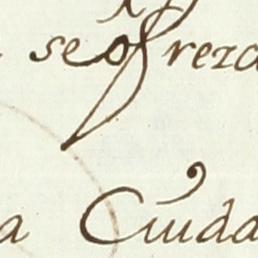 se ofreza
a Ciuda